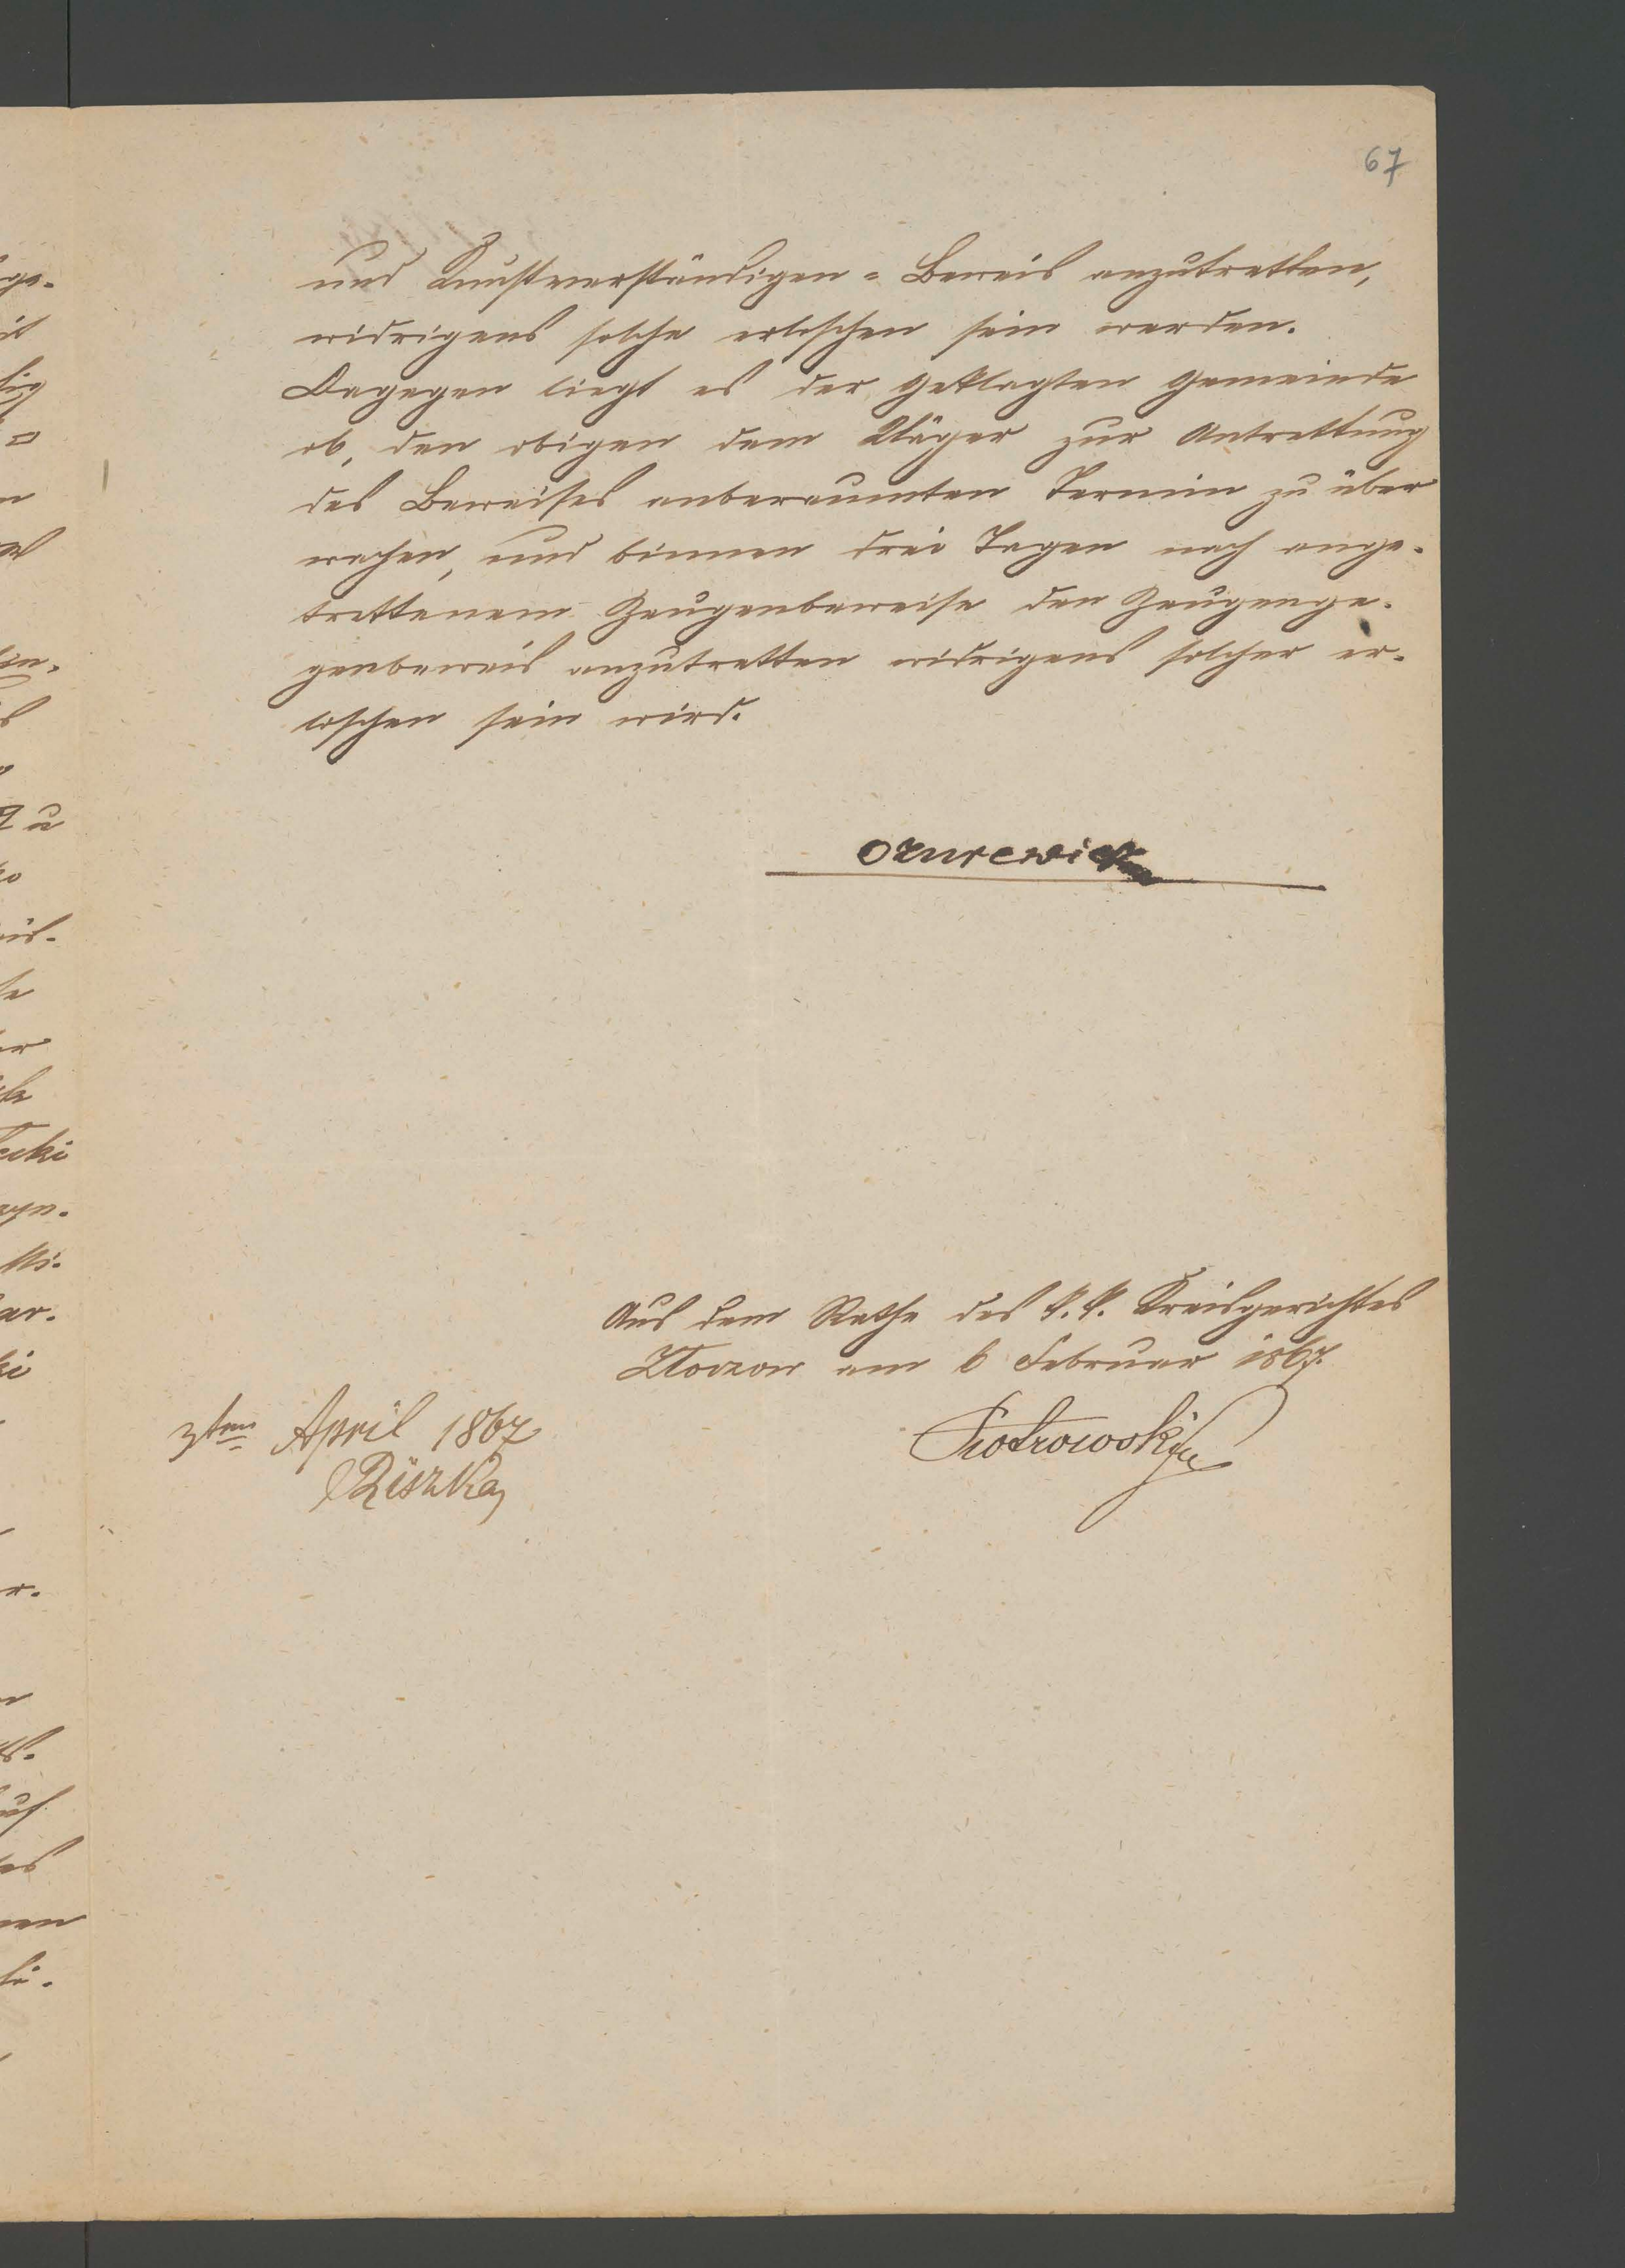 67
und Kunstverständigen = Beweis anzutretten,
widrigens solche erloschen sein werden.
Dagegen liegt es der geklagten Gemeinde
ob, den obigen dem Kläger zur Antrettung
des Beweises anberaumten Termin zu über
wachen, und binnen drei Tagen nach ange-
trettenem Zeugenbeweise den Zeugenge-
genbeweis anzutretten widrigens solcher er-
loschen sein wird.
Aus dem Rathe des k. k. Kreisgerichtes
Złoczow am 6 Februar 1867.
3ten April 1867
Piotrowski